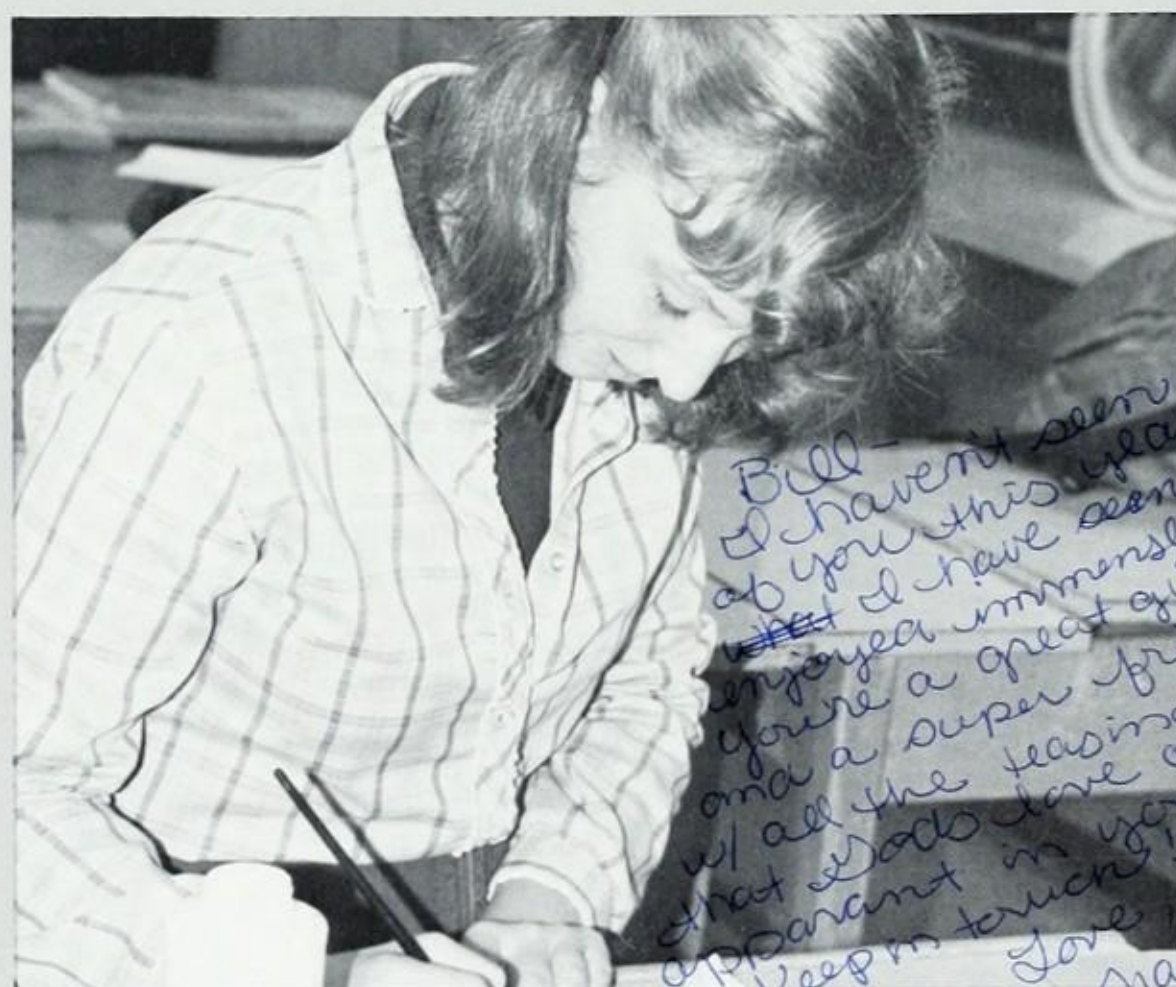 Bill-
I haven't seen
of you this yea
I have seen
enjoyed immensl
you're a great g
and a super fr
w/ all the teasin
that Gods love
apparant in yo
Keep in touch
Love